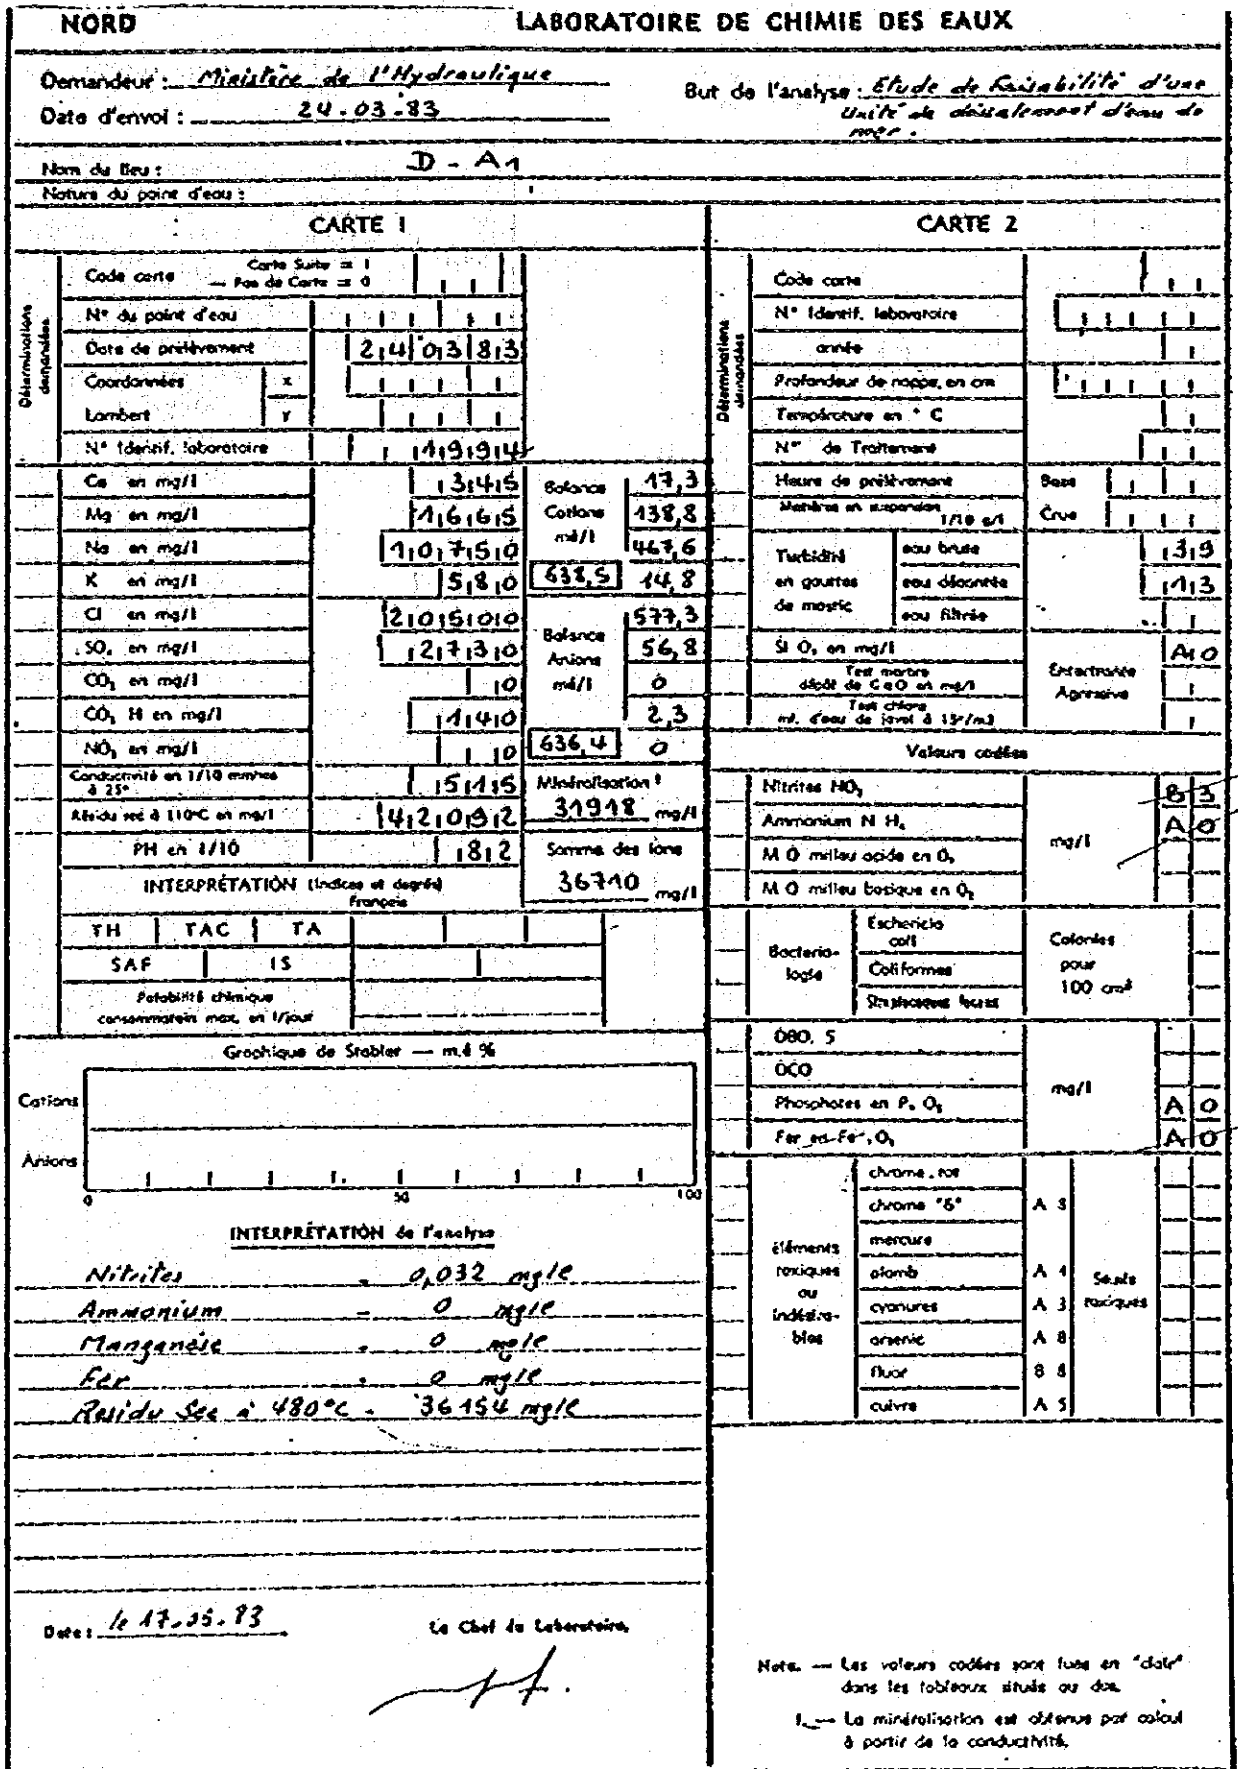 NORD
LABORATOIRE DE CHIMIE DES EAUX
Demandeur : Ministère de l'Hydraulique
Date d'envoi : 24.03.83
But de l'analyse : Etude de Faisabilité d'une
Unité de déssalement d'eau de
mer.
Nom du lieu : D - A1
Nature du point d'eau :
CARTE 1
Déterminations demandées
Code carte Carte Suite = 1
— Pas de Carte = 0
N° du point d'eau
Date de prélèvement 24 03 83
Coordonnées x
Lambert Y
N° Identif. laboratoire 1994
Ca en mg/l 345
Mg en mg/l 1665
Na en mg/l 10750
K en mg/l 580
Balance Cations mé/l 638,5
17,3
138,8
467,6
14,8
Cl en mg/l 20500
SO₄ en mg/l 2730
CO₃ en mg/l 0
CO₃ H en mg/l 140
NO₃ en mg/l 0
Balance Anions mé/l 636,4
577,3
56,8
0
2,3
0
Conductivité en 1/10 mmhos à 25° 515
Résidu sec à 110°C en mg/l 42092
PH en 1/10 82
Minéralisation ¹
31918 mg/l
Somme des ions
36710 mg/l
INTERPRÉTATION (Indices et degrés)
Français
TH TAC TA
SAF IS
Potabilité chimique
consommation max. en l/jour
Graphique de Stabler — m.é %
Cations
Anions
0 50 100
INTERPRÉTATION de l'analyse
Nitrites - 0,032 mg/l
Ammonium - 0 mg/l
Manganèse . 0 mg/l
Fer . 0 mg/l
Residu Sec à 480°C - 36154 mg/l
Date : le 17.05.83
Le Chef du Laboratoire,
CARTE 2
Déterminations demandées
Code carte
N° Identif. laboratoire
année
Profondeur de nappe, en cm
Température en ° C
N° de Traitement
Heure de prélèvement
Matières en suspension
1/10 g/l
Base
Crue
Turbidité
en gouttes
de mastic
eau brute 39
eau décantée 13
eau filtrée
Si O₂ en mg/l A0
Test marbre
dépôt de CaO en mg/l
Test chlore
ml. d'eau de javel à 15°/m3
Entartrante
Agressive
Valeurs codées
Nitrites NO₂ B3
Ammonium N H₄ A0
M O milieu acide en O₂
M O milieu basique en O₂
mg/l
Bacteriologie
Escherichia coli
Coliformes
Streptocoques fecaux
Colonies
pour
100 cm³
DBO. 5
DCO
Phosphates en P₂ O₅ A0
Fer en Fe₂ O₃ A0
mg/l
éléments
toxiques
ou
indésirables
chrome . tot
chrome "6" A 3
mercure
plomb A 1
cyanures A 3
arsenic A 8
fluor
cuivre A 5
Seuils
toxiques
Nota. — Les valeurs codées sont lues en "clair"
dans les tableaux situés au dos.
1. — La minéralisation est obtenue par calcul
à partir de la conductivité.